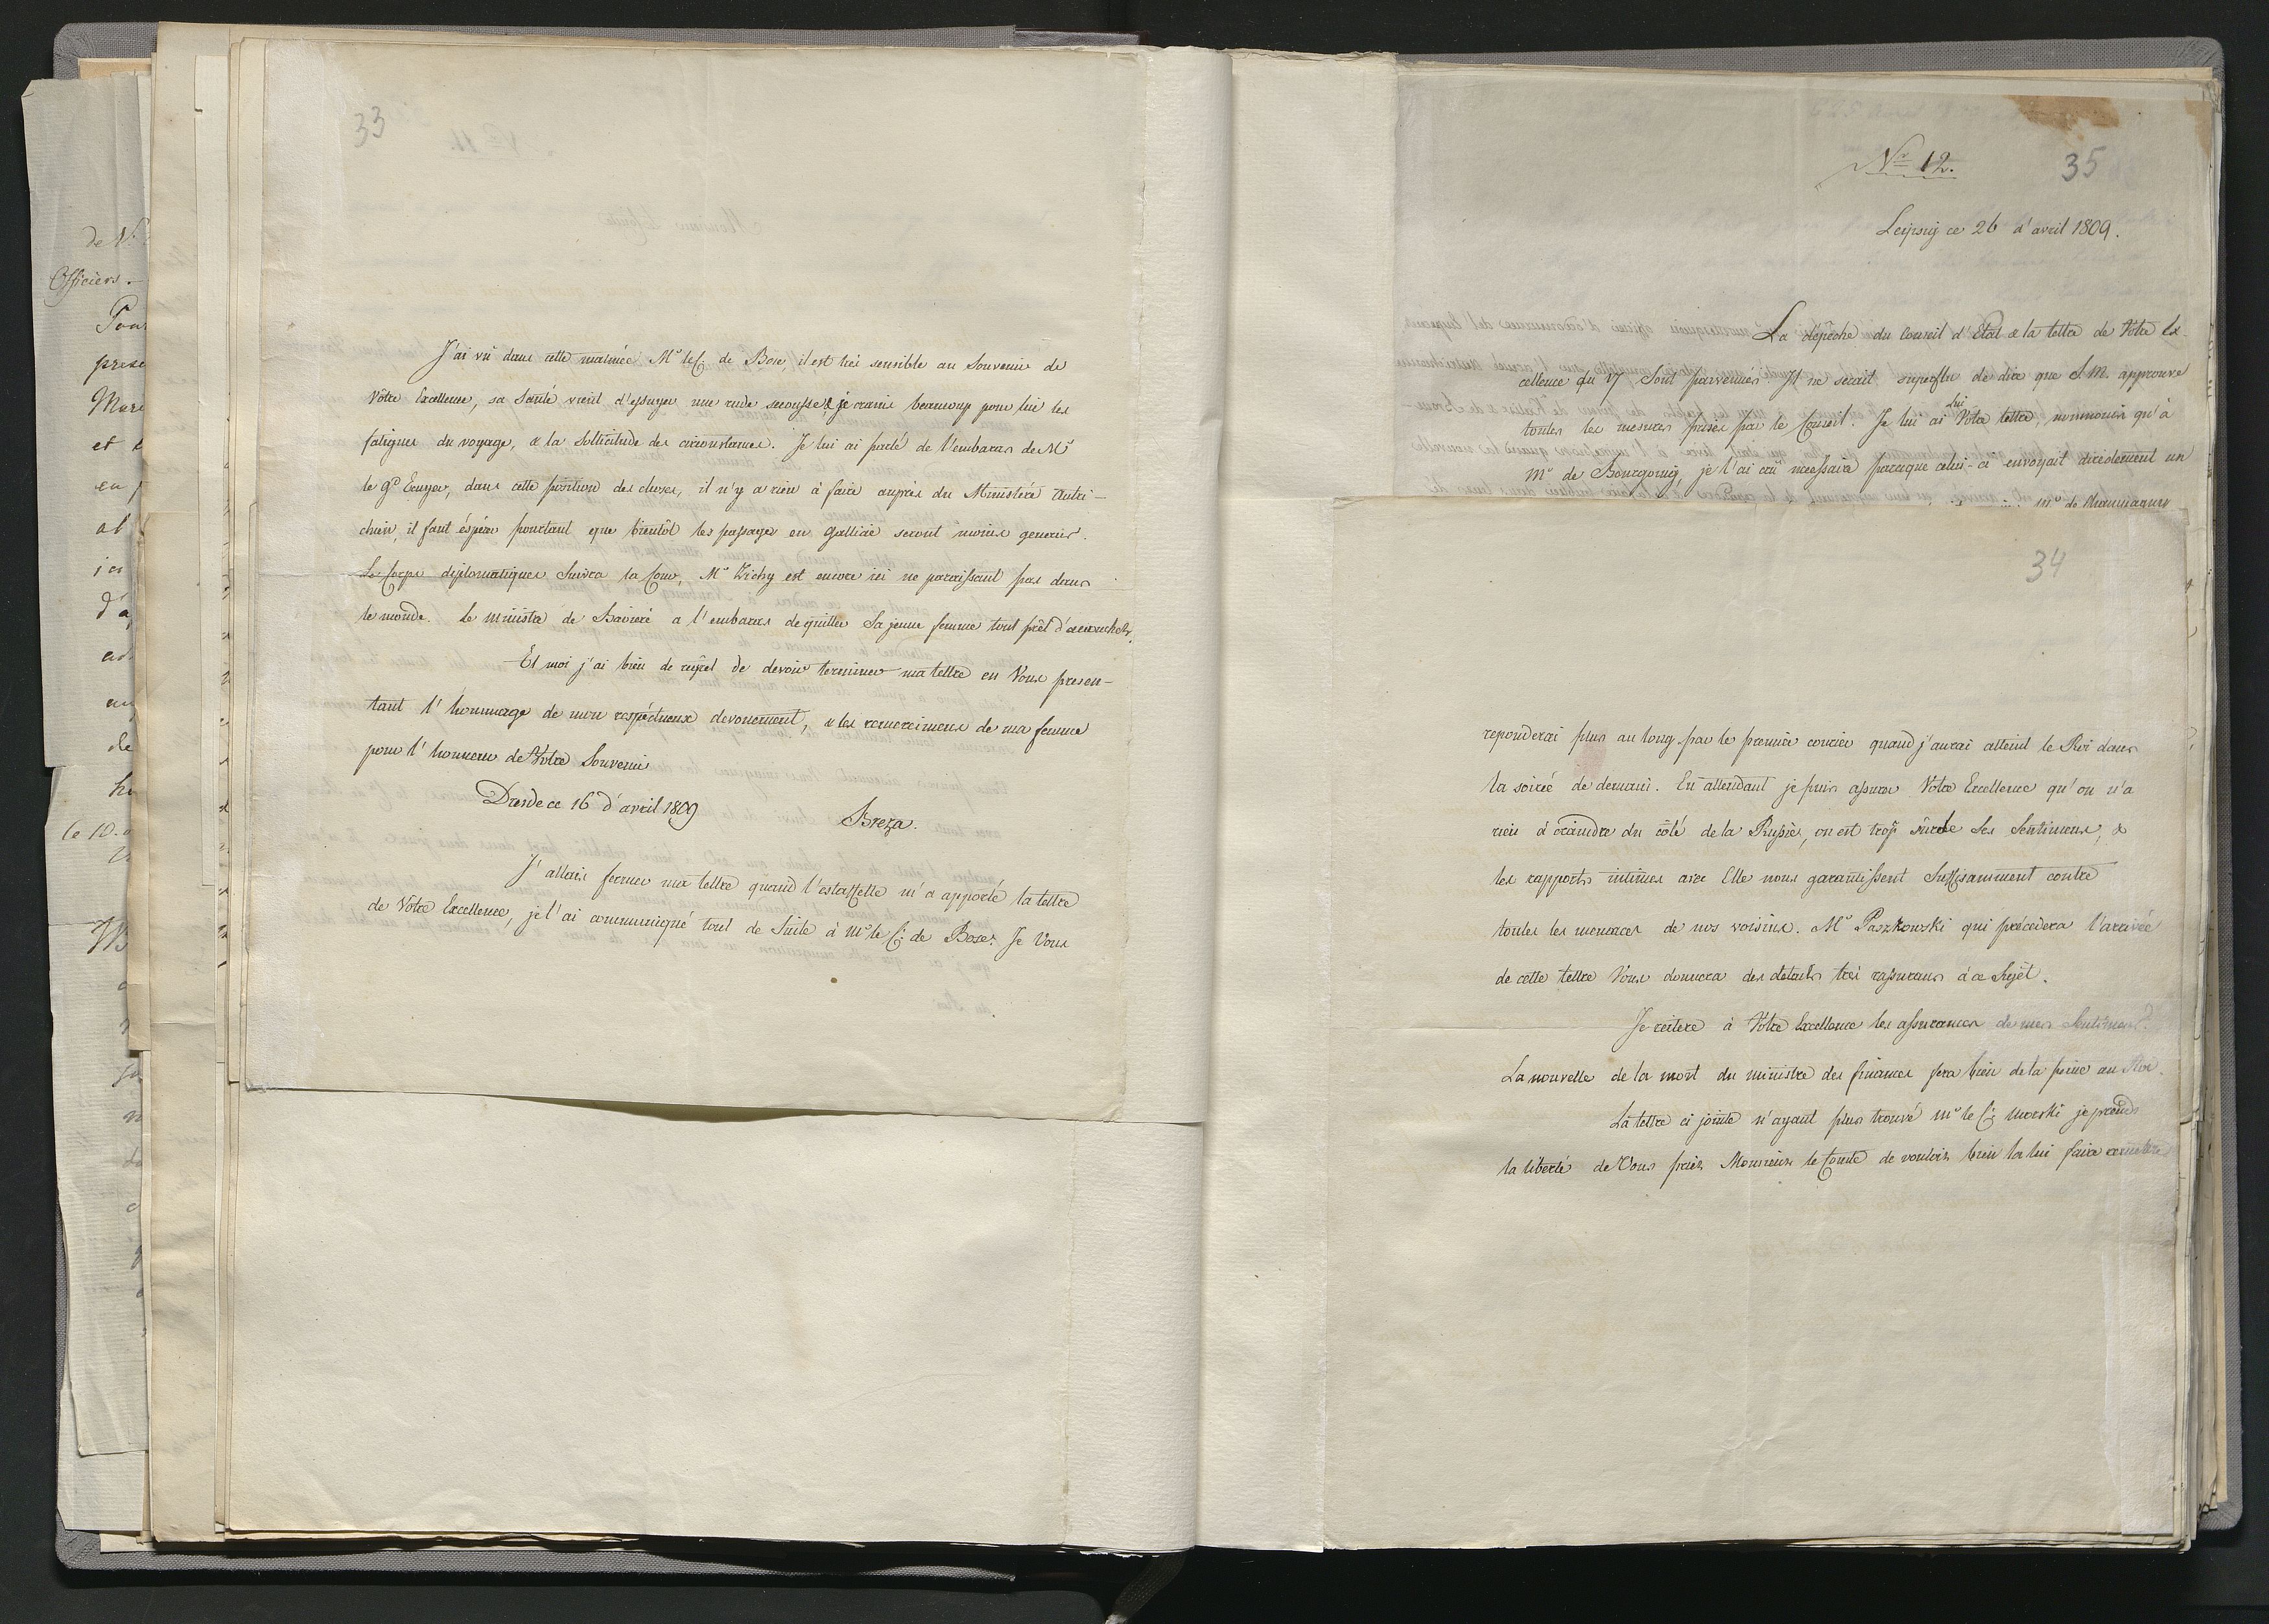 33
J'ai vû dans cette matinée Mr le C. de Bose, il est trés sensible au Souvenir de
Vôtre Excellence, sa Santé vient d'essuyer une rude secousse & je crains beaucoup pour lui les
fatigues du voyage, & la Sollicitude des circonstances. Je lui ai parlé de l'embaras de Mr
le gd Ecuyer, dans cette position des choses, il n'y a rien à faire auprès du Ministère Autri-
chien, il faut éspérer pourtant que bientôt les passages en Gallicie seront moins generis.
Le Corps diplomatique Suivra la Cour, Mr Zichy est encore ici ne paraissant pas dans
le monde. Le ministre de Bavière a l'embaras de quitter Sa jeune femme tout prêt d'accoucher.
Et moi j'ai bien de regret de devoir terminer ma lettre en Vous presen-
tant l'hommage de mon respéctueux devouement, & les remerciemens de ma femme
pour l'honneur de Vôtre Souvenir
Dresde ce 16 d'avril 1809
Breza.
J'allais fermer ma lettre quand l'estaffette m'a apporté la lettre
de Vôtre Excellence, je l'ai communiqué tout de Suite à Mr le C. de Bose. Je Vous
34
reponderai plus au long par le premier courier quand j'aurai atteint le Roi dans
la soirée de demain. En attendant je puis assurer Votre Excellence qu'on n'a
rien à craindre du côté de la Russie, on est trop sûr de Ses Sentimens, &
les rapports intimes avec Elle nous garantissent Suffisamment contre
toutes les menaces de nos voisins. Mr Paszkowski qui précédera l'arrivée
de cette lettre Vous donnera des details très rassurans à ce Sujet.
Je reitere à Votre Excellence les assurances de mes Sentimens
La nouvelle de la mort du ministre des finances fera bien de la peine au Roi.
La lettre ci jointe n'ayant plus trouvé Mr le C. Morski je prends
la liberté de Vous prier Monsieur le Comte de vouloir bien la lui faire remettre
Nr 12.
35
Leipsig ce 26 d'avril 1809.
La dépeche du Conseil d'Etat & la lettre de Votre Ex-
cellence du 17 Sont parvenues. Il ne serait superflu de dire que S M. approuve
toutes les mesures prises par le Conseil. Je lui ai lui Vôtre lettre, nommoins qu'à
Mr de Bourgoing, je l'ai crû necessaire parceque celui-ci envoyait directement un
Mr de Champagny
de N.
Officiers.
Pour
prese
et
en
d'a
de
le 10.